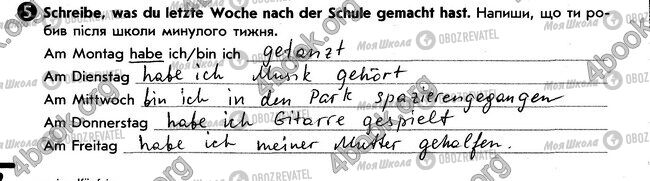 5 Schreibe, was du letzte Woche nach der Schule gemacht hast. Напиши, що ти ро-
бив після школи минулого тижня.
Am Montag habe ich/bin ich getanzt
Am Dienstag habe ich Musik gehört
Am Mittwoch bin ich in den Park spazierengegangen
Am Donnerstag habe ich Gitarre gespielt
Am Freitag habe ich meiner Mutter geholfen.